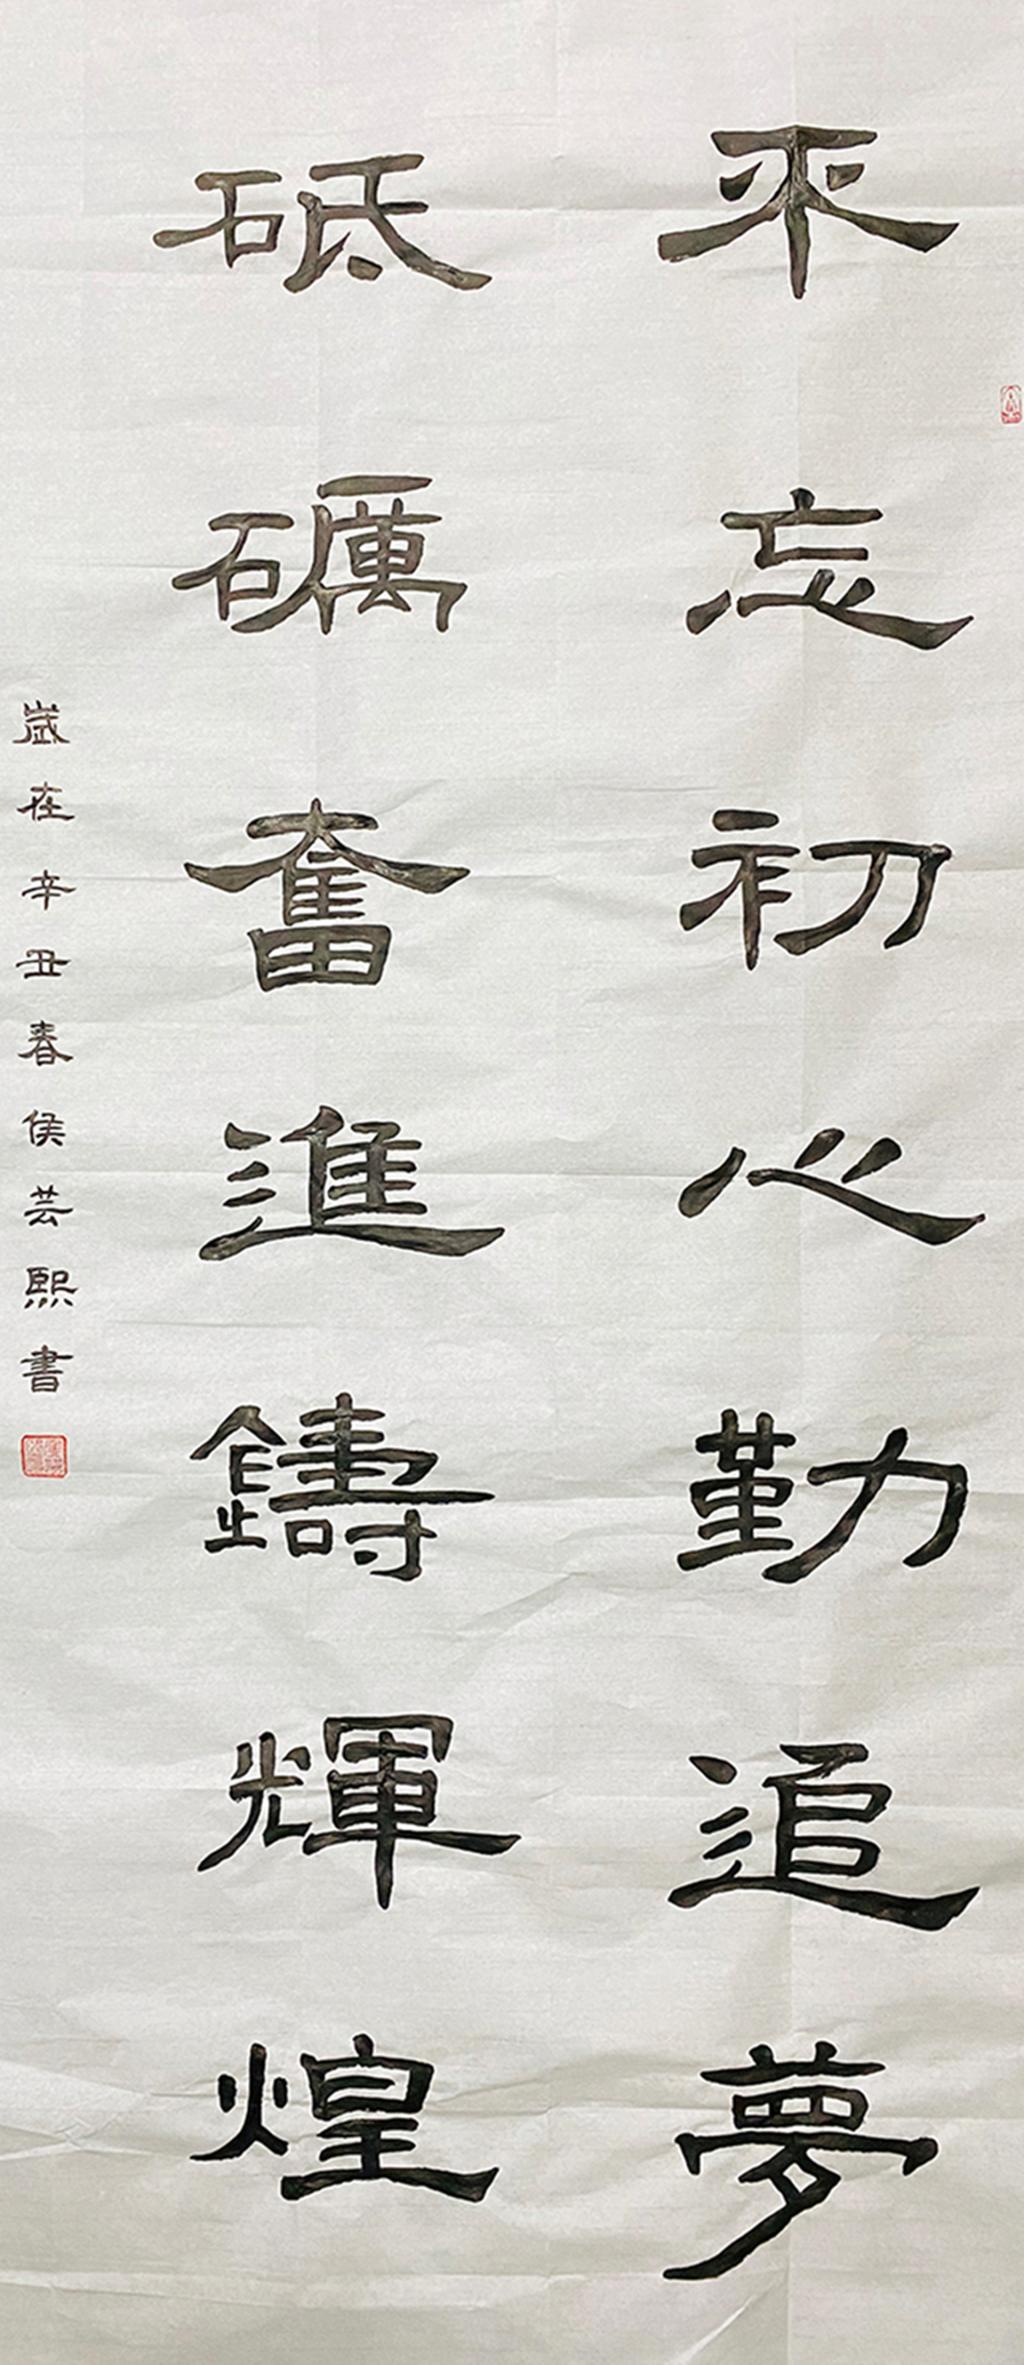 来忘初心勤追夢
砥礪奮進鑄輝煌
歲在辛丑春侯芸熙書